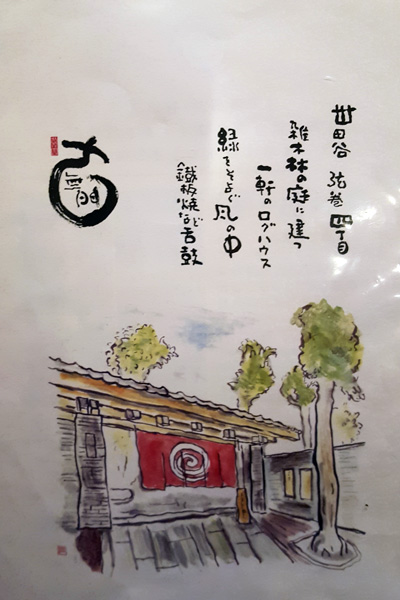 世田谷 弦巻 四丁目
雑木林の庭に建つ
一軒のログハウス
緑をそよぐ風の中
鐵板焼など舌鼓